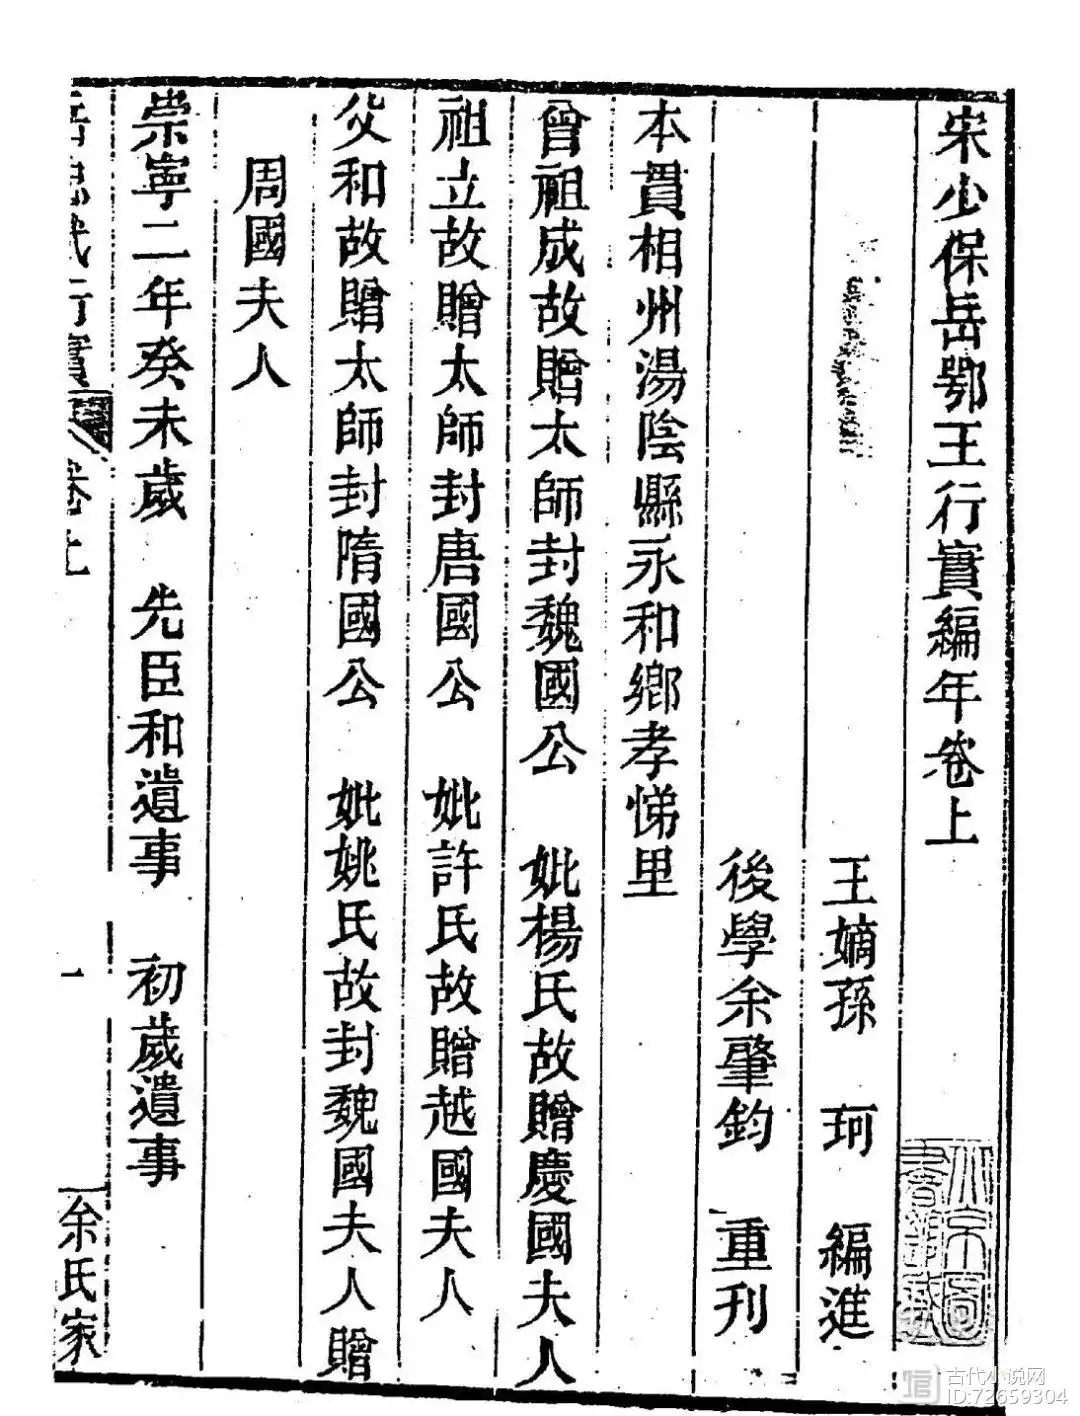 宋少保岳鄂王行實編年卷上
王嫡孫　珂　編進
後學余肇鈞　重刊
本貫相州湯陰縣永和鄉孝悌里
曾祖成故贈太師封魏國公　妣楊氏故贈慶國夫人
祖立故贈太師封唐國公　妣許氏故贈越國夫人
父和故贈太師封隋國公　妣姚氏故封魏國夫人贈
周國夫人
崇寧二年癸未歲　先臣和遺事　初歲遺事
行實
卷上
一
余氏家
古代小说网
ID:72659304